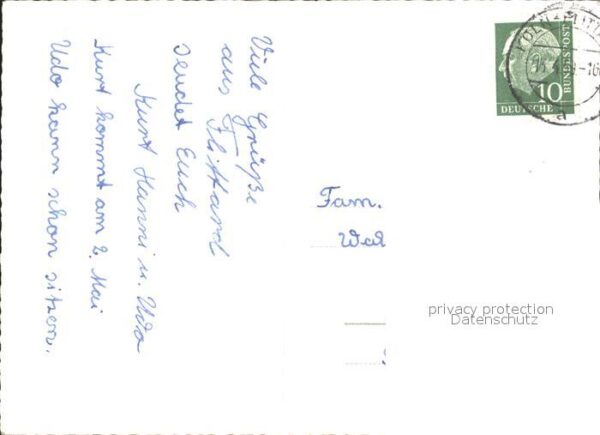 Viele Grüße
aus Flittard
sendet Euch
Kurt Hanni u. Udo
Kurt kommt am 2. Mai
Udo kann schon sitzen.
Fam.
privacy protection
Datenschutz
10
DEUTSCHE
BUNDESPOST
KÖLN-FLITTA
d